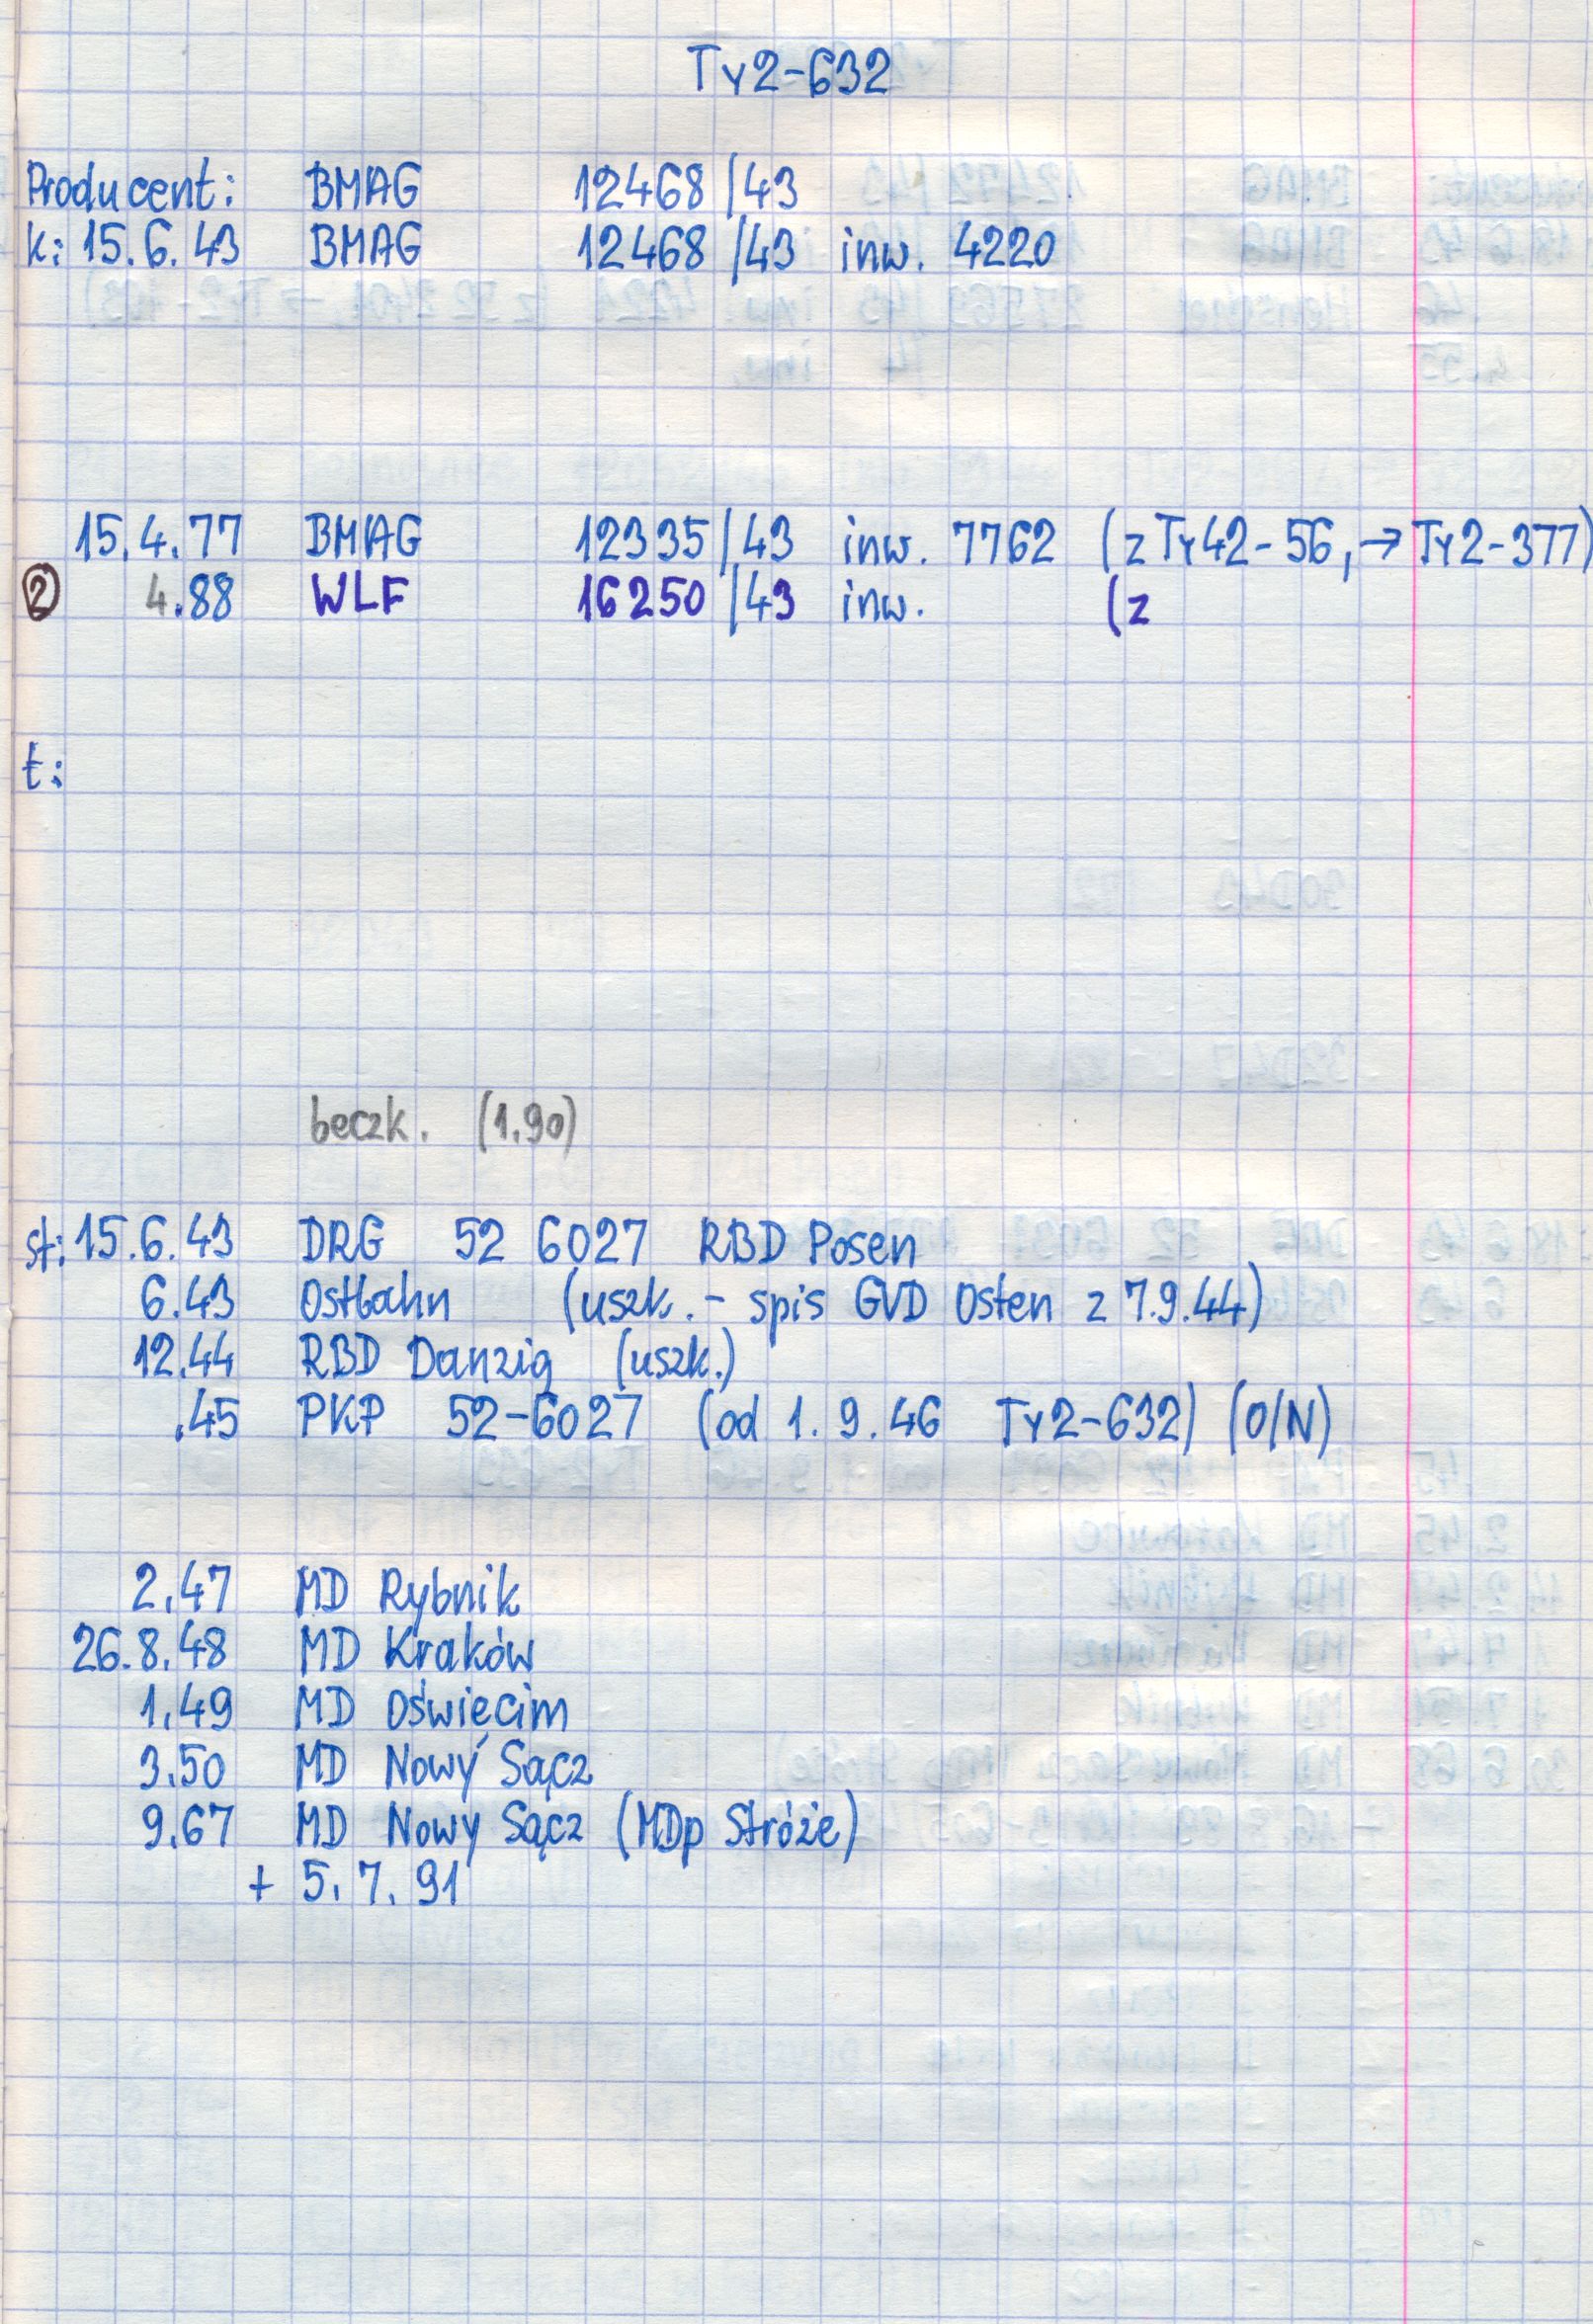 Ty2-632
Producent: BMAG 12468/43
k: 15.6.43 BMAG 12468/43 inw. 4220
15.4.77 BMAG 12335/43 inw. 7762 (z Ty42-56, → Ty2-377)
② 4.88 WLF 16250/43 inw. (z
t:
beczk. (1.90)
st: 15.6.43 DRG 52 6027 RBD Posen
6.43 Ostbahn (uszk. - spis GVD Osten z 7.9.44)
12.44 RBD Danzig (uszk.)
.45 PKP 52-6027 (od 1.9.46 Ty2-632) (O/N)
2.47 MD Rybnik
26.8.48 MD Kraków
1.49 MD Oświęcim
3.50 MD Nowy Sącz
9.67 MD Nowy Sącz (MDp Stróże)
+ 5.7.91